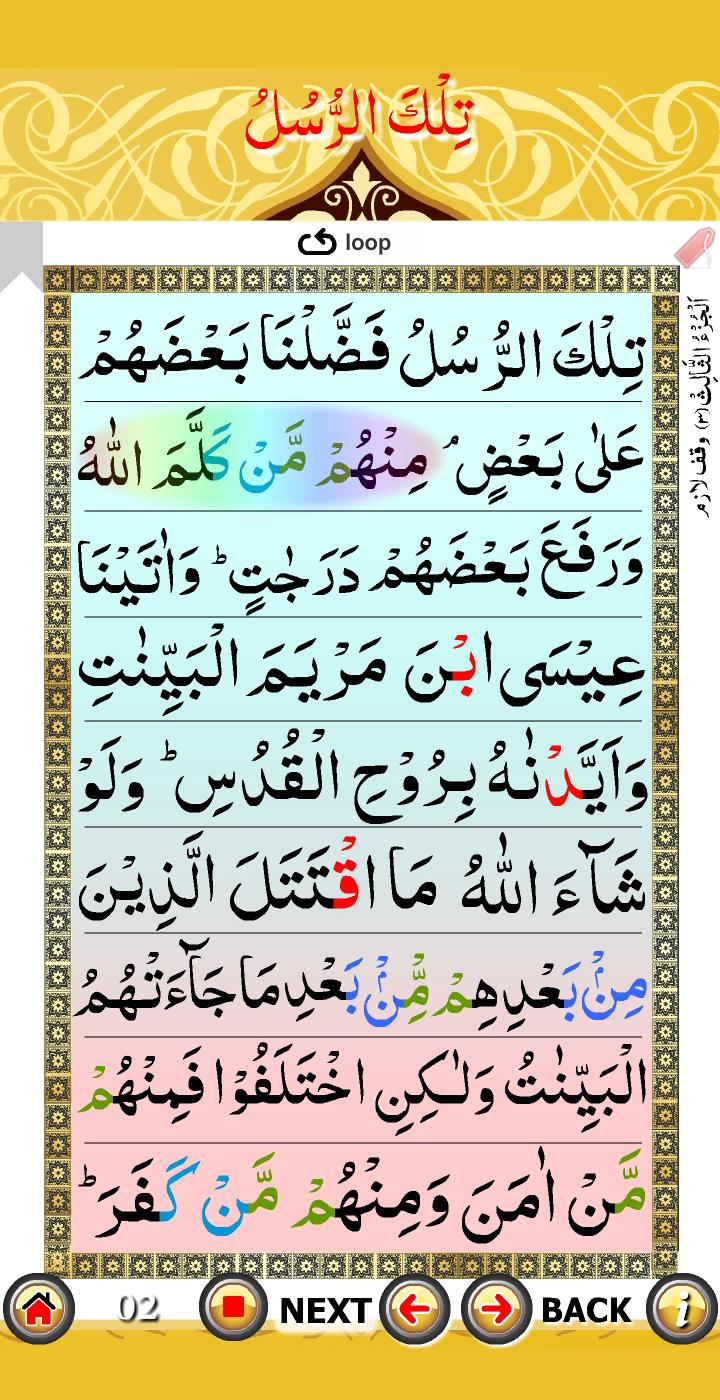 تِلْكَ الرُّسُلُ
loop
تِلْكَ الرُّسُلُ فَضَّلْنَا بَعْضَهُمْ
عَلٰى بَعْضٍ ۘ مِنْهُمْ مَّنْ كَلَّمَ اللّٰهُ
وَرَفَعَ بَعْضَهُمْ دَرَجٰتٍ ؕ وَاٰتَيْنَا
عِيْسَى ابْنَ مَرْيَمَ الْبَيِّنٰتِ
وَاَيَّدْنٰهُ بِرُوْحِ الْقُدُسِ ؕ وَلَوْ
شَآءَ اللّٰهُ مَا اقْتَتَلَ الَّذِيْنَ
مِنْۢ بَعْدِهِمْ مِّنْۢ بَعْدِ مَا جَآءَتْهُمُ
الْبَيِّنٰتُ وَلٰكِنِ اخْتَلَفُوْا فَمِنْهُمْ
مَّنْ اٰمَنَ وَمِنْهُمْ مَّنْ كَفَرَ ؕ
اَلْجُزْءُ الثَّالِثُ (۳) وقف لازم
02 NEXT BACK i